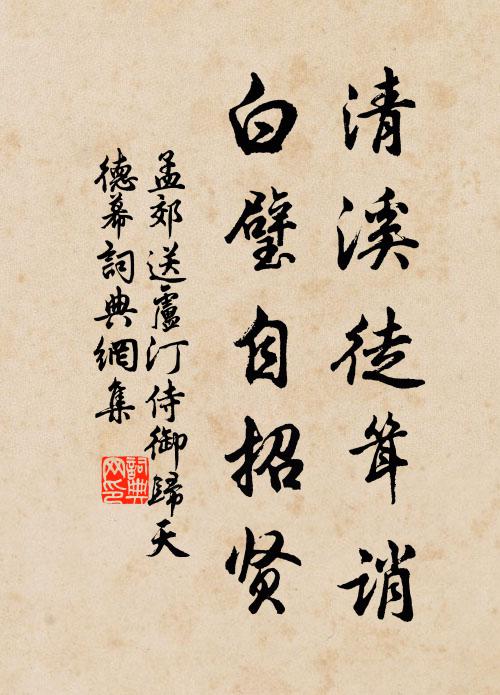 清溪徒耸诮
白璧自招贤
孟郊送盧汀侍御歸天
德幕詞典網集
詞典
网印